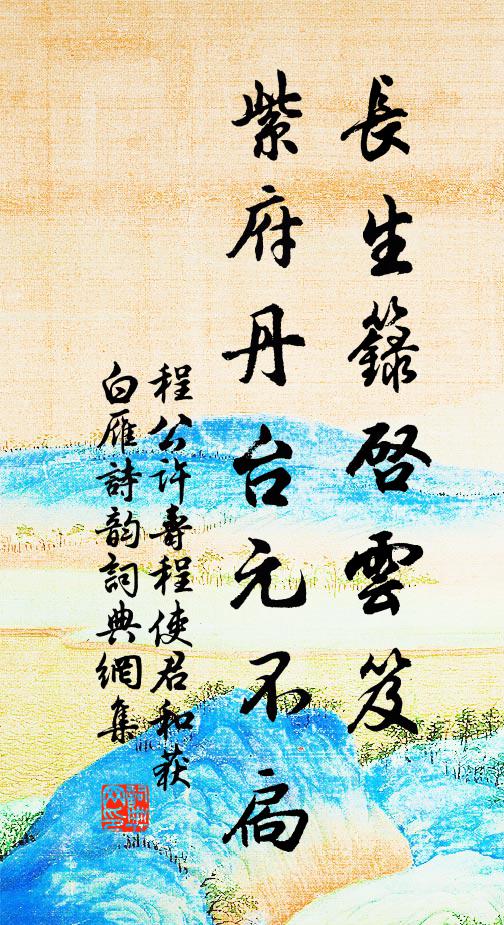 長生籙啓雲笈
紫府丹台元不扃
程公许壽程使君和获
白雁詩韵詞典網集